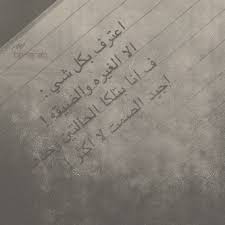 اعترف بكل شي :
الا الغيره والضيقه !
ف انا بتلكا الحالتين
اجيد الصمت لا اكثر